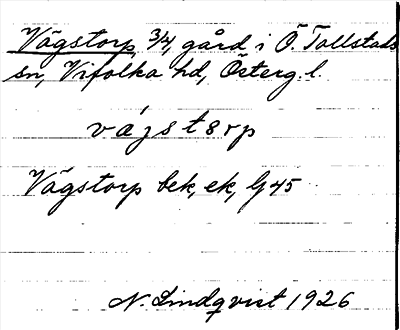 Vägstorp, 3/4, gård i Ö. Tollstads
sn, Vifolka hd, Österg. l.
vägstorp
Vägstorp bek, ek, G 45
N. Lindqvist 1926